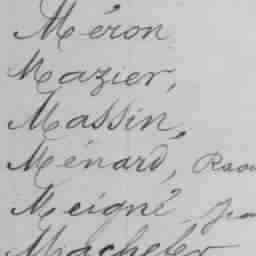 Méron
Mazier,
Massin,
Ménard, Raou
Meigné
Macheler